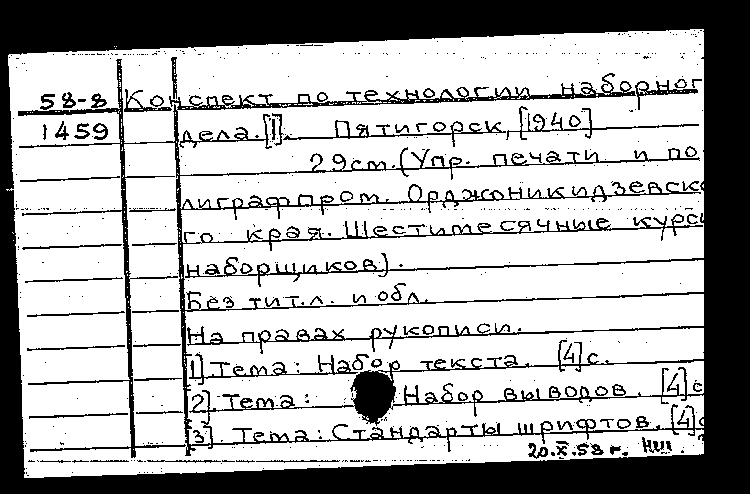 58-8 Конспект по технологии наборног
1459 дела.[1]. Пятигорск, [1940]
29см. (Упр. печати и по
лиграфпром. Орджоникидзевск
го края. Шестимесячные курс
наборщиков).
Без тит.л. и обл.
На правах рукописи.
[1]. Тема: Набор текста. [4] с.
[2]. Тема: Набор выводов. [4] с
[3] Тема: Стандарты шрифтов. [4] с
20.X.58 г.